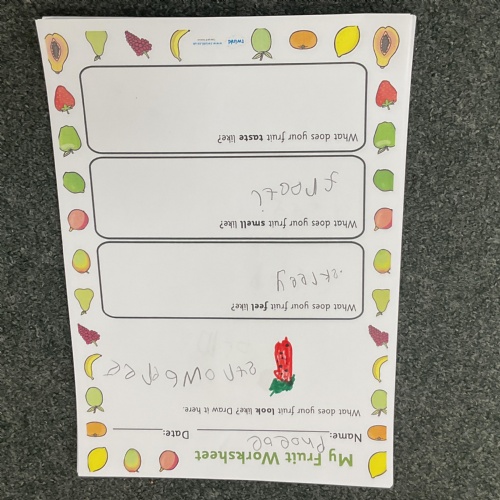 My Fruit Worksheet
Name: Phoebe Date:
What does your fruit look like? Draw it here.
What does your fruit feel like?
What does your fruit smell like?
frooti
What does your fruit taste like?
twinkl